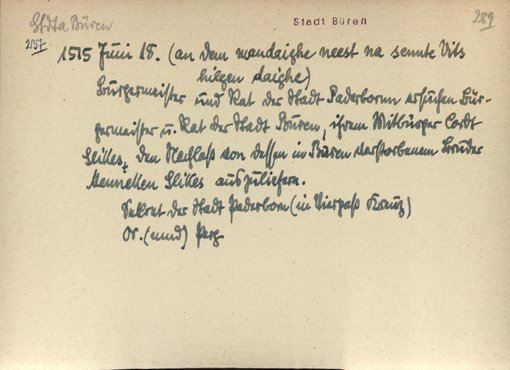 StdtA Büren
Stadt Büren
289
2137
1515 Juni 18. (an dem mandaighe neest na sennte Vits
hilgen daighe)
Bürgermeister und Rat der Stadt Paderborn ersuchen Bür-
germeister u. Rat der Stadt Büren, ihrem Mitbürger Cordt
Slikes, den Nachlaß von dessen in Büren verstorbenem Bruder
Mennekken Slikes auszuliefern.
Sekret der Stadt Paderborn (in Vierpaß Kreuz)
Or. (mnd) Perg